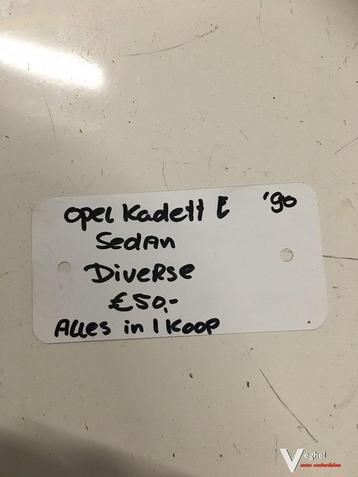 Opel Kadett E '90
Sedan
Diverse
€50,-
Alles in 1 Koop
Veghel
auto onderdelen